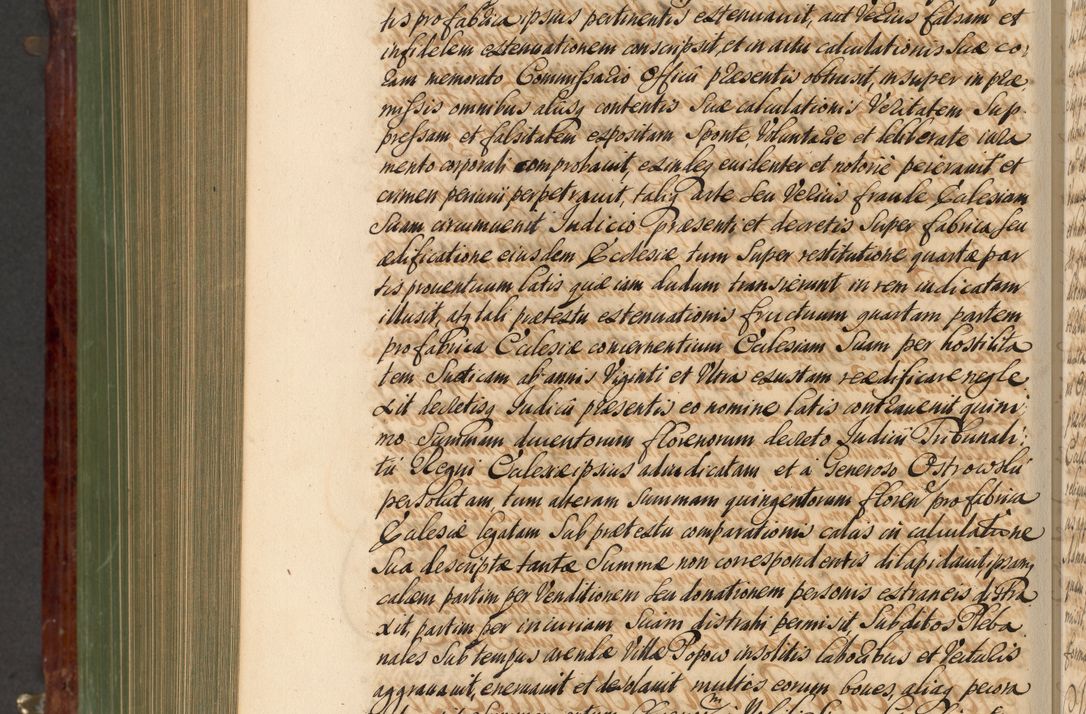 tis pro fabrica ipsius pertinentis extenuavit, aut verius falsam et
infidelem extenuationem conscripsit, et in actu calculationis suæ co¬
ram memorato Commissario Officii præsentis obtrusit, insuper in præ
missis omnibus aliisq contentis suæ calculationis veritatem sup
pressam et falsitatem expositam sponte voluntarie et deliberate iura
mento corporali comprobavit, exindeq evidenter et notorie peieravit et
crimen periurii perpetravit, taliq arte seu verius fraude Ecclesiam
suam circumvenit Judicio præsenti et decretis super fabrica seu
ædificatione eiusdem Ecclesiæ tum super restitutione quartæ par
tis proventuum latis quæ iam dudum transierunt in rem iudicatam
illusit, atq tali prætextu extenuationis fructuum quartam partem
pro fabrica Ecclesiæ concernentium Ecclesiam suam per hostilita
tem Sueticam ab annis viginti et ultra exustam reædificare negle
xit decretisq Judicii præsentis eo nomine latis contravenit quini
mo summam ducentorum florenorum decreto Judicii Tribunali¬
tii Regni Ecclesiæ ipsius adiudicatam et a Generoso Ostrowskii
persolutam, tum alteram summam quingentorum floren pro fabrica
Ecclesiæ legatam sub prætextu comparationis calcis in calculatione
sua descriptæ tantæ summæ non correspondentis dilapidavit, ipsamq
calcem partim per venditionem seu donationem personis extraneis distra
xit, partim per incuriam suam distrahi permisit, subditos Pleba
nales sub tempus arendæ villæ Popow insolitis laboribus et vecturis
aggravavit, enervavit et desolavit multos eorum boves, aliaq pecora